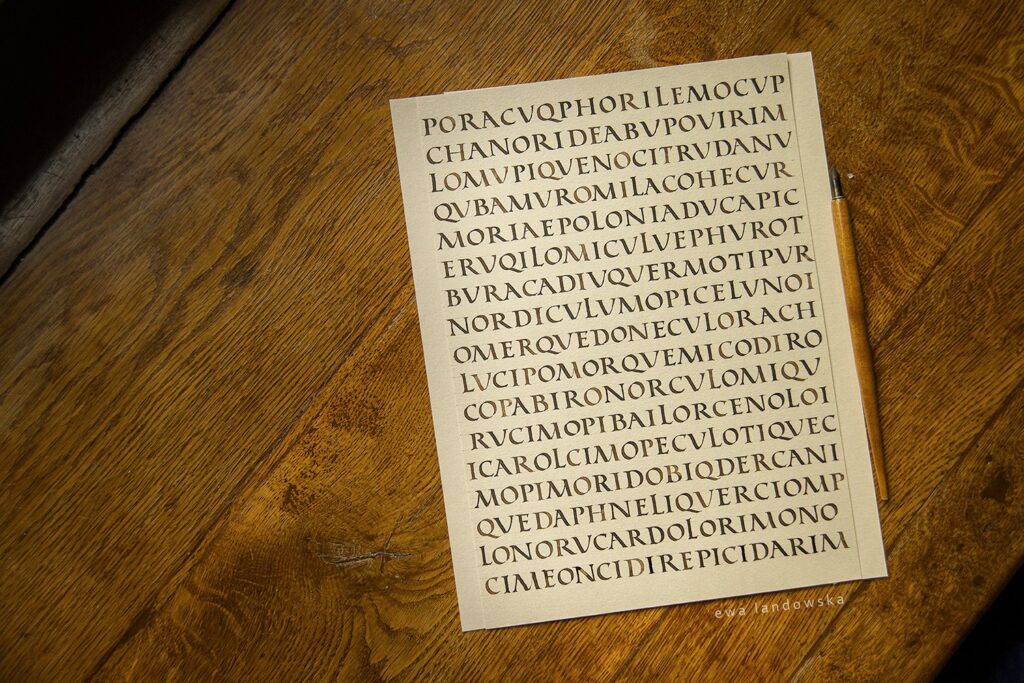 PORACVQPHORILEMOCVP
CHANORIDEABVPOVIRIM
LOMVPIQVENOCITRVDANV
QVBAMVROMILACOHECVR
MORIAEPOLONIADVCAPIC
ERVQILOMICVLVEPHVROT
BVRACADIVQVERMOTIPVR
NORDICVLVMOPICELVNOI
OMERQVEDONECVLORACH
LVCIPOMORQVEMICODIRO
COPABIRONORCVLOMIQV
RVCIMOPIBAILORCENOLOI
ICAROLCIMOPECVLOTIQVEC
MOPIMORIDOBIQDERCANI
QVEDAPHNELIQVERCIOMP
LONORVCARDOLORIMONO
CIMEONCIDIREPICIDARIM
ewa landowska